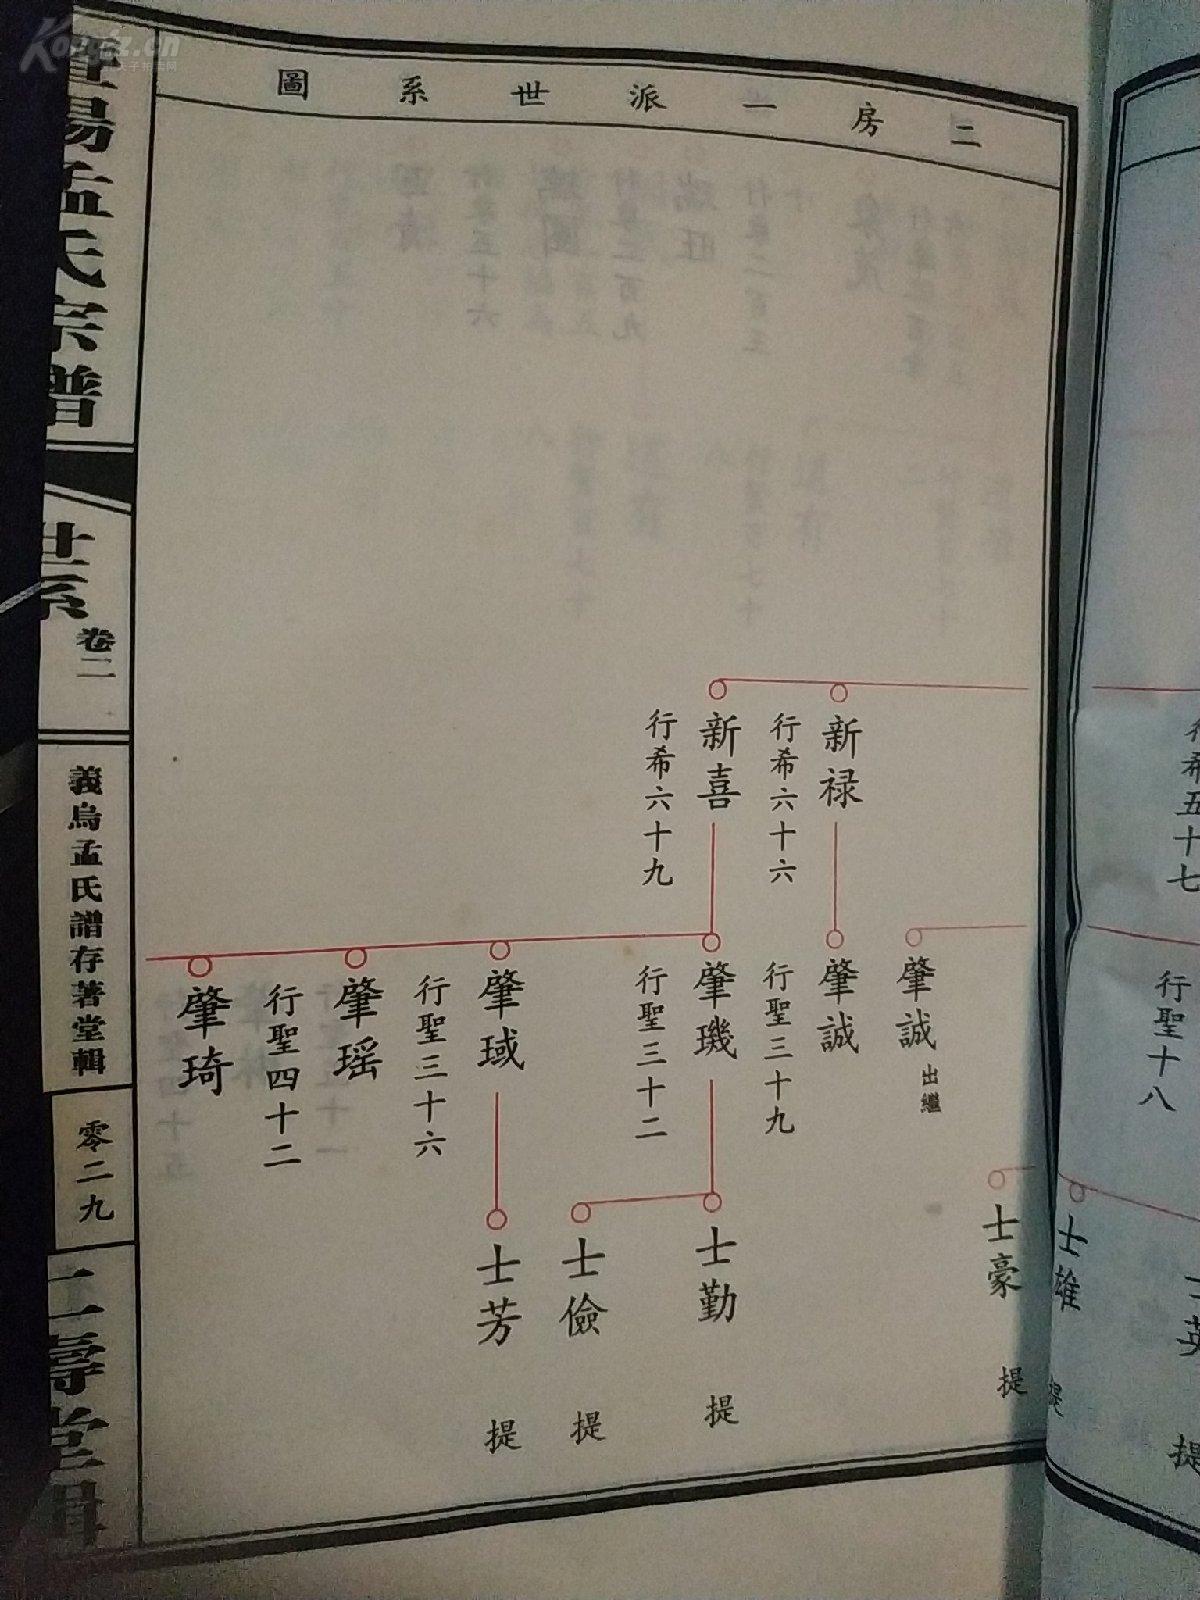 二房一派世系圖
行希五十七
行聖十八
士雄
提
提
肇誠
出繼
士豪
提
新禄
行希六十六
肇誠
行聖三十九
新喜
行希六十九
肇璣
行聖三十二
士勤
提
士儉
提
肇琙
行聖三十六
士芳
提
肇瑶
行聖四十二
肇琦
孟氏宗譜
世系
卷二
義烏孟氏譜存著堂輯
零二九
壽堂